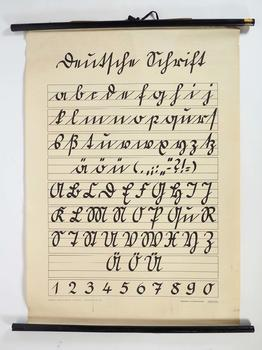 Deutsche Schrift
a b c d e f g h i j
k l m n o p q u r s
s ß t u v w x y z tz
ä ö ü ( . , ; : „ “ - ? ! = )
A B C D E F G H I J
K L M N O P Qu R
S T St U V W X Y Z
Ä Ö Ü
1 2 3 4 5 6 7 8 9 0